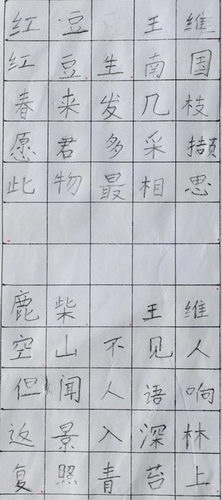 红豆 王维
红豆生南国
春来发几枝
愿君多采撷
此物最相思
鹿柴 王维
空山不见人
但闻人语响
返景入深林
复照青苔上